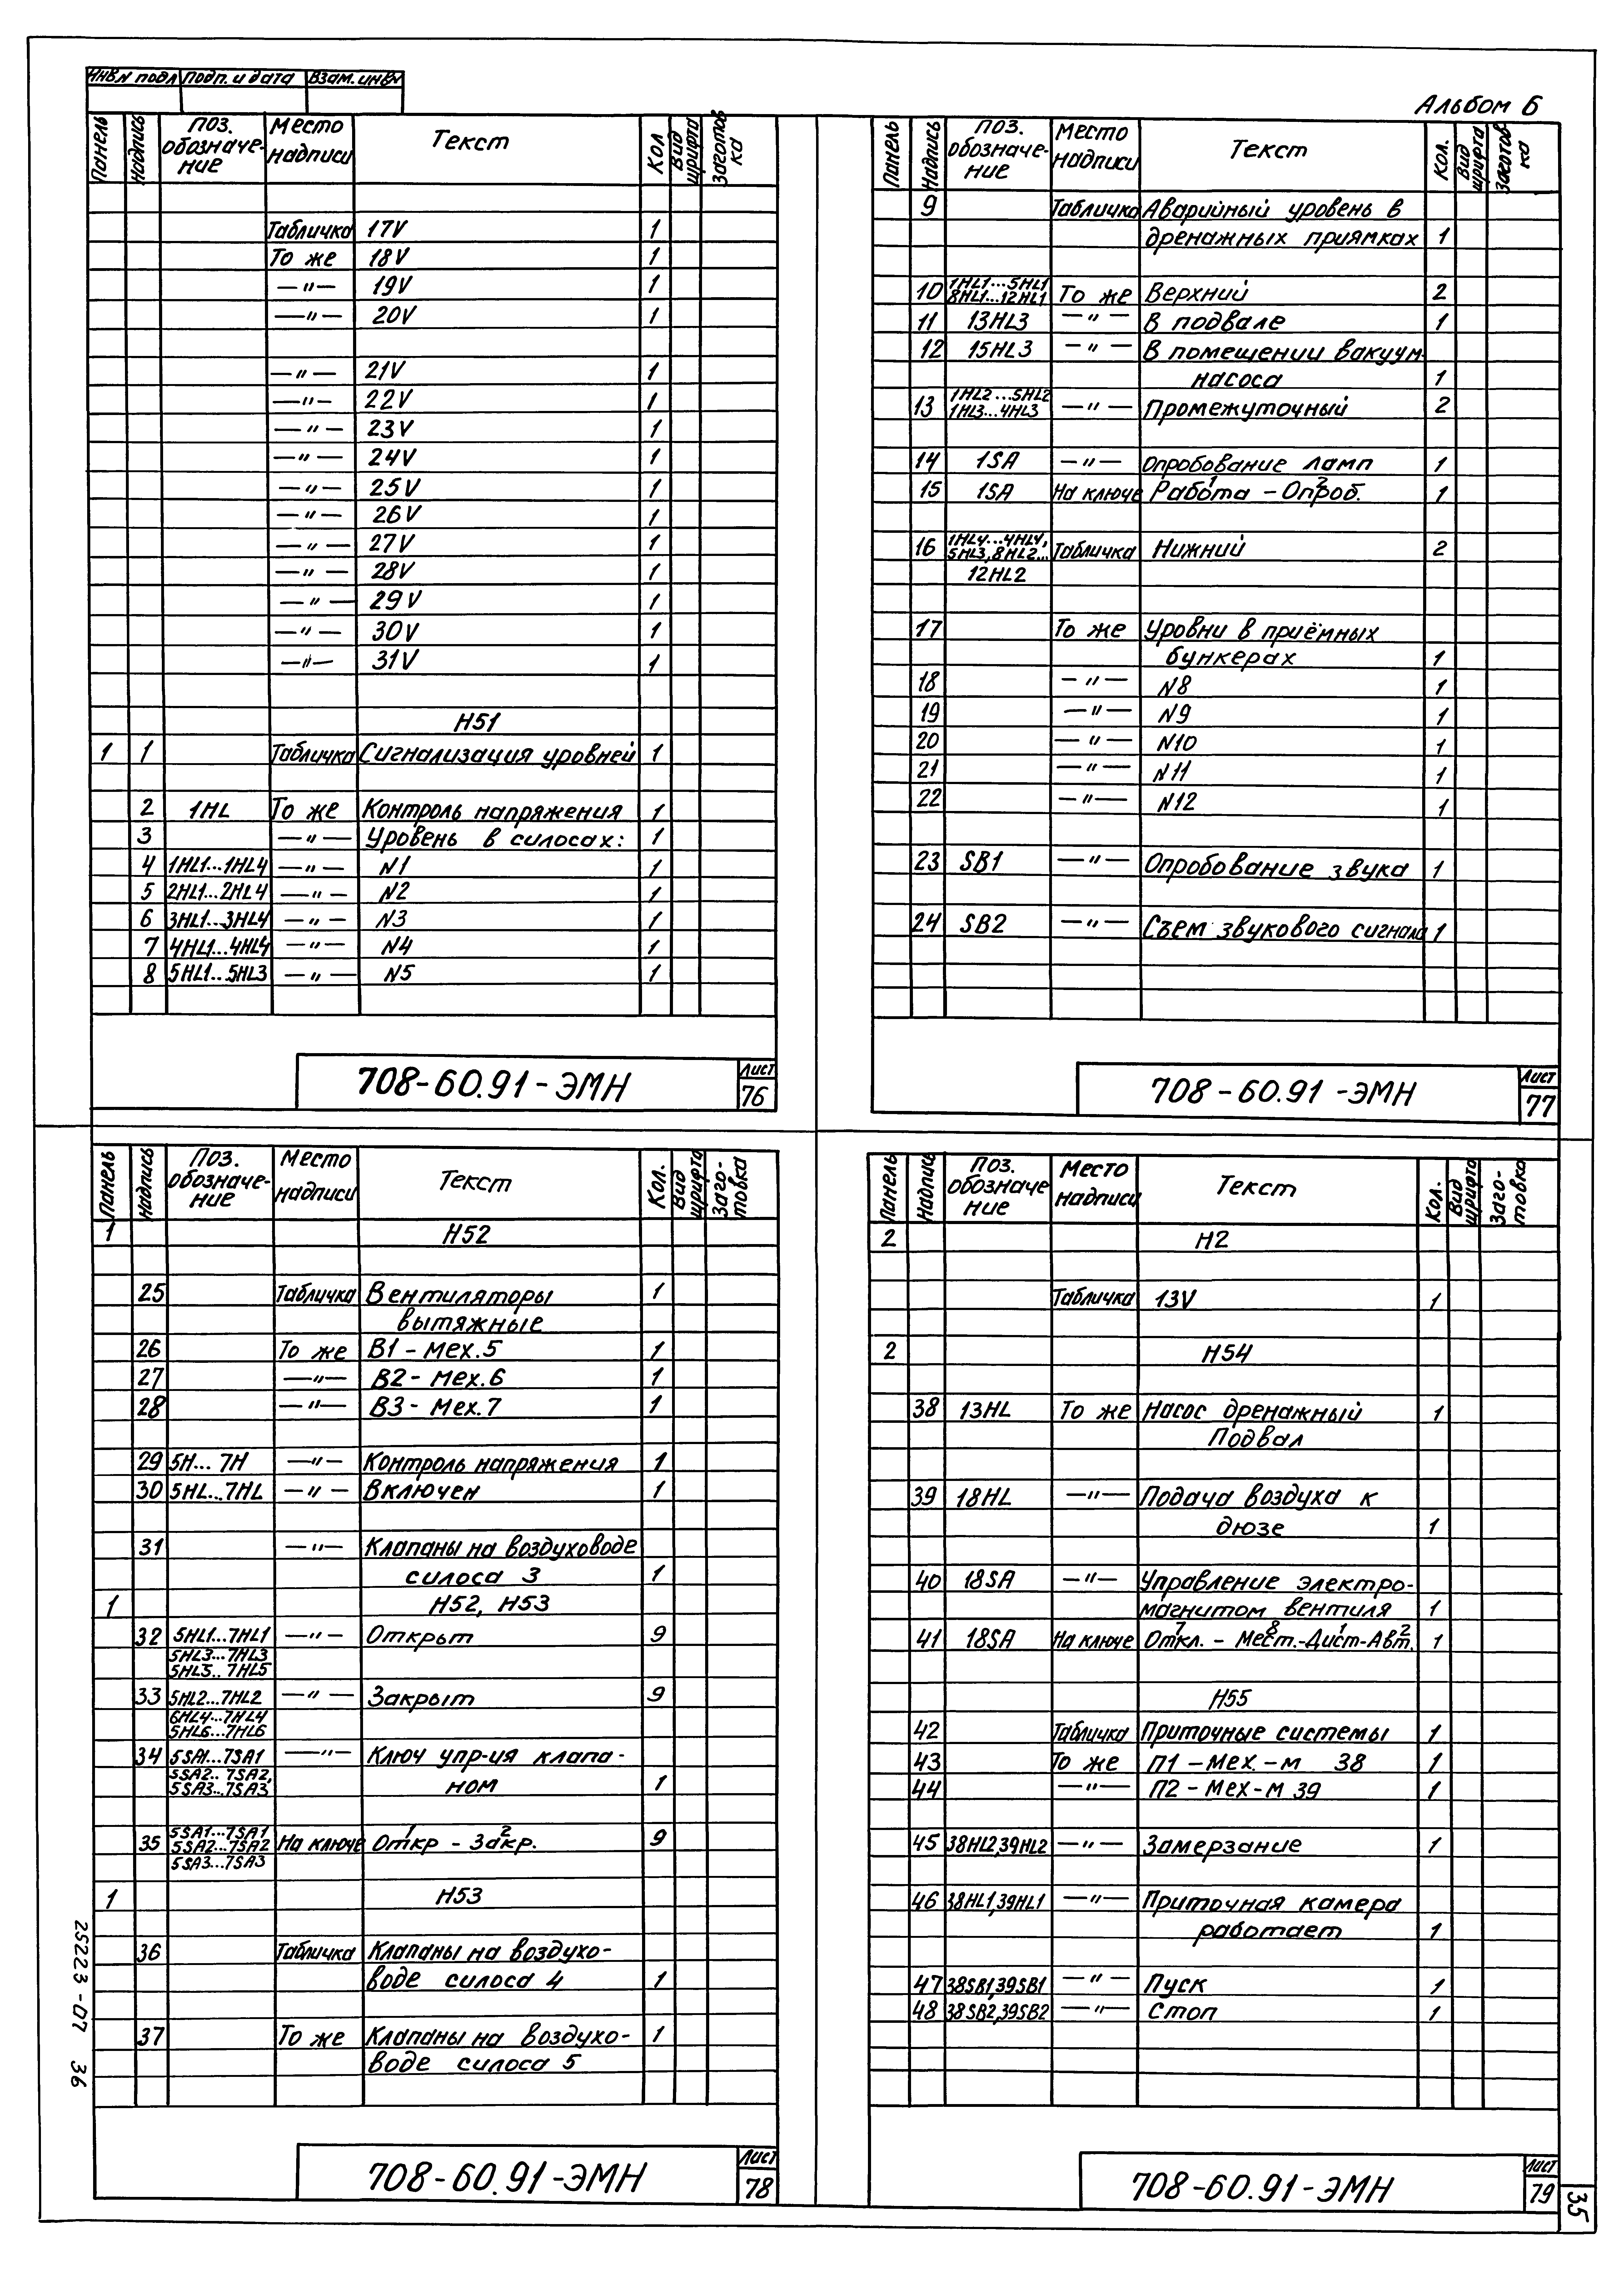 Инв.N подл Подп. и дата Взам. инв.N
Альбом 6
Панель Надпись Поз. обозначение Место надписи Текст Кол Вид шрифта Заготовка
Табличка 17V 1
То же 18V 1
—"— 19V 1
—"— 20V 1
—"— 21V 1
—"— 22V 1
—"— 23V 1
—"— 24V 1
—"— 25V 1
—"— 26V 1
—"— 27V 1
—"— 28V 1
—"— 29V 1
—"— 30V 1
—"— 31V 1
Н51
1 1 Табличка Сигнализация уровней 1
2 1HL То же Контроль напряжения 1
3 —"— Уровень в силосах: 1
4 1HL1...1HL4 —"— N1 1
5 2HL1...2HL4 —"— N2 1
6 3HL1...3HL4 —"— N3 1
7 4HL1...4HL4 —"— N4 1
8 5HL1...5HL3 —"— N5 1
708-60.91-ЭМН Лист 76
Панель Надпись Поз. обозначение Место надписи Текст Кол. Вид шрифта Заготовка
9 Табличка Аварийный уровень в
дренажных приямках 1
10 1HL1...5HL1 8HL1...12HL1 То же Верхний 2
11 13HL3 —"— В подвале 1
12 15HL3 —"— В помещении вакуум-
насоса 1
13 1HL2...5HL2 1HL3...4HL3 —"— Промежуточный 2
14 1SA —"— Опробование ламп 1
15 1SA На ключе Работа 1 – Опроб. 2 1
16 1HL4...4HL4, 5HL3, 8HL2... Табличка Нижний 2
12HL2
17 То же Уровни в приёмных
бункерах 1
18 —"— N8 1
19 —"— N9 1
20 —"— N10 1
21 —"— N11 1
22 —"— N12 1
23 SB1 —"— Опробование звука 1
24 SB2 —"— Съем звукового сигнала 1
708-60.91-ЭМН Лист 77
Панель Надпись Поз. обозначение Место надписи Текст Кол. Вид шрифта Заготовка
1 Н52
25 Табличка Вентиляторы 1
вытяжные
26 То же В1 - мех.5 1
27 —"— В2 - мех.6 1
28 —"— В3 - мех.7 1
29 5Н...7Н —"— Контроль напряжения 1
30 5HL...7HL —"— Включен 1
31 —"— Клапаны на воздуховоде
силоса 3 1
1 Н52, Н53
32 5HL1...7HL1 —"— Открыт 9
5HL3...7HL3
5HL5..7HL5
33 5HL2...7HL2 —"— Закрыт 9
6HL4...7HL4
5HL6...7HL6
34 5SA1...7SA1 —"— Ключ упр-ия клапа-
5SA2..7SA2, 5SA3...7SA3 ном 1
35 5SA1...7SA1 5SA2...7SA2 На ключе Откр 1 - Закр. 2 9
5SA3...7SA3
1 Н53
36 Табличка Клапаны на воздухо-
воде силоса 4 1
37 То же Клапаны на воздухо- 1
воде силоса 5
708-60.91-ЭМН Лист 78
Панель Надпись Поз. обозначение Место надписи Текст Кол. Вид шрифта Заготовка
2 Н2
Табличка 13V 1
2 Н54
38 13HL То же Насос дренажный 1
Подвал
39 18HL —"— Подача воздуха к
дюзе 1
40 18SA —"— Управление электро-
магнитом вентиля 1
41 18SA На ключе Откл. 7 - Мест. 8 - Дист 1 - Авт. 2 1
Н55
42 Табличка Приточные системы 1
43 То же П1 - Мех.-м 38 1
44 —"— П2 - Мех-м 39 1
45 38HL2,39HL2 —"— Замерзание 1
46 38HL1,39HL1 —"— Приточная камера
работает 1
47 38SB1,39SB1 —"— Пуск 1
48 38SB2,39SB2 —"— Стоп 1
708-60.91-ЭМН Лист 79
25223-07 36
35